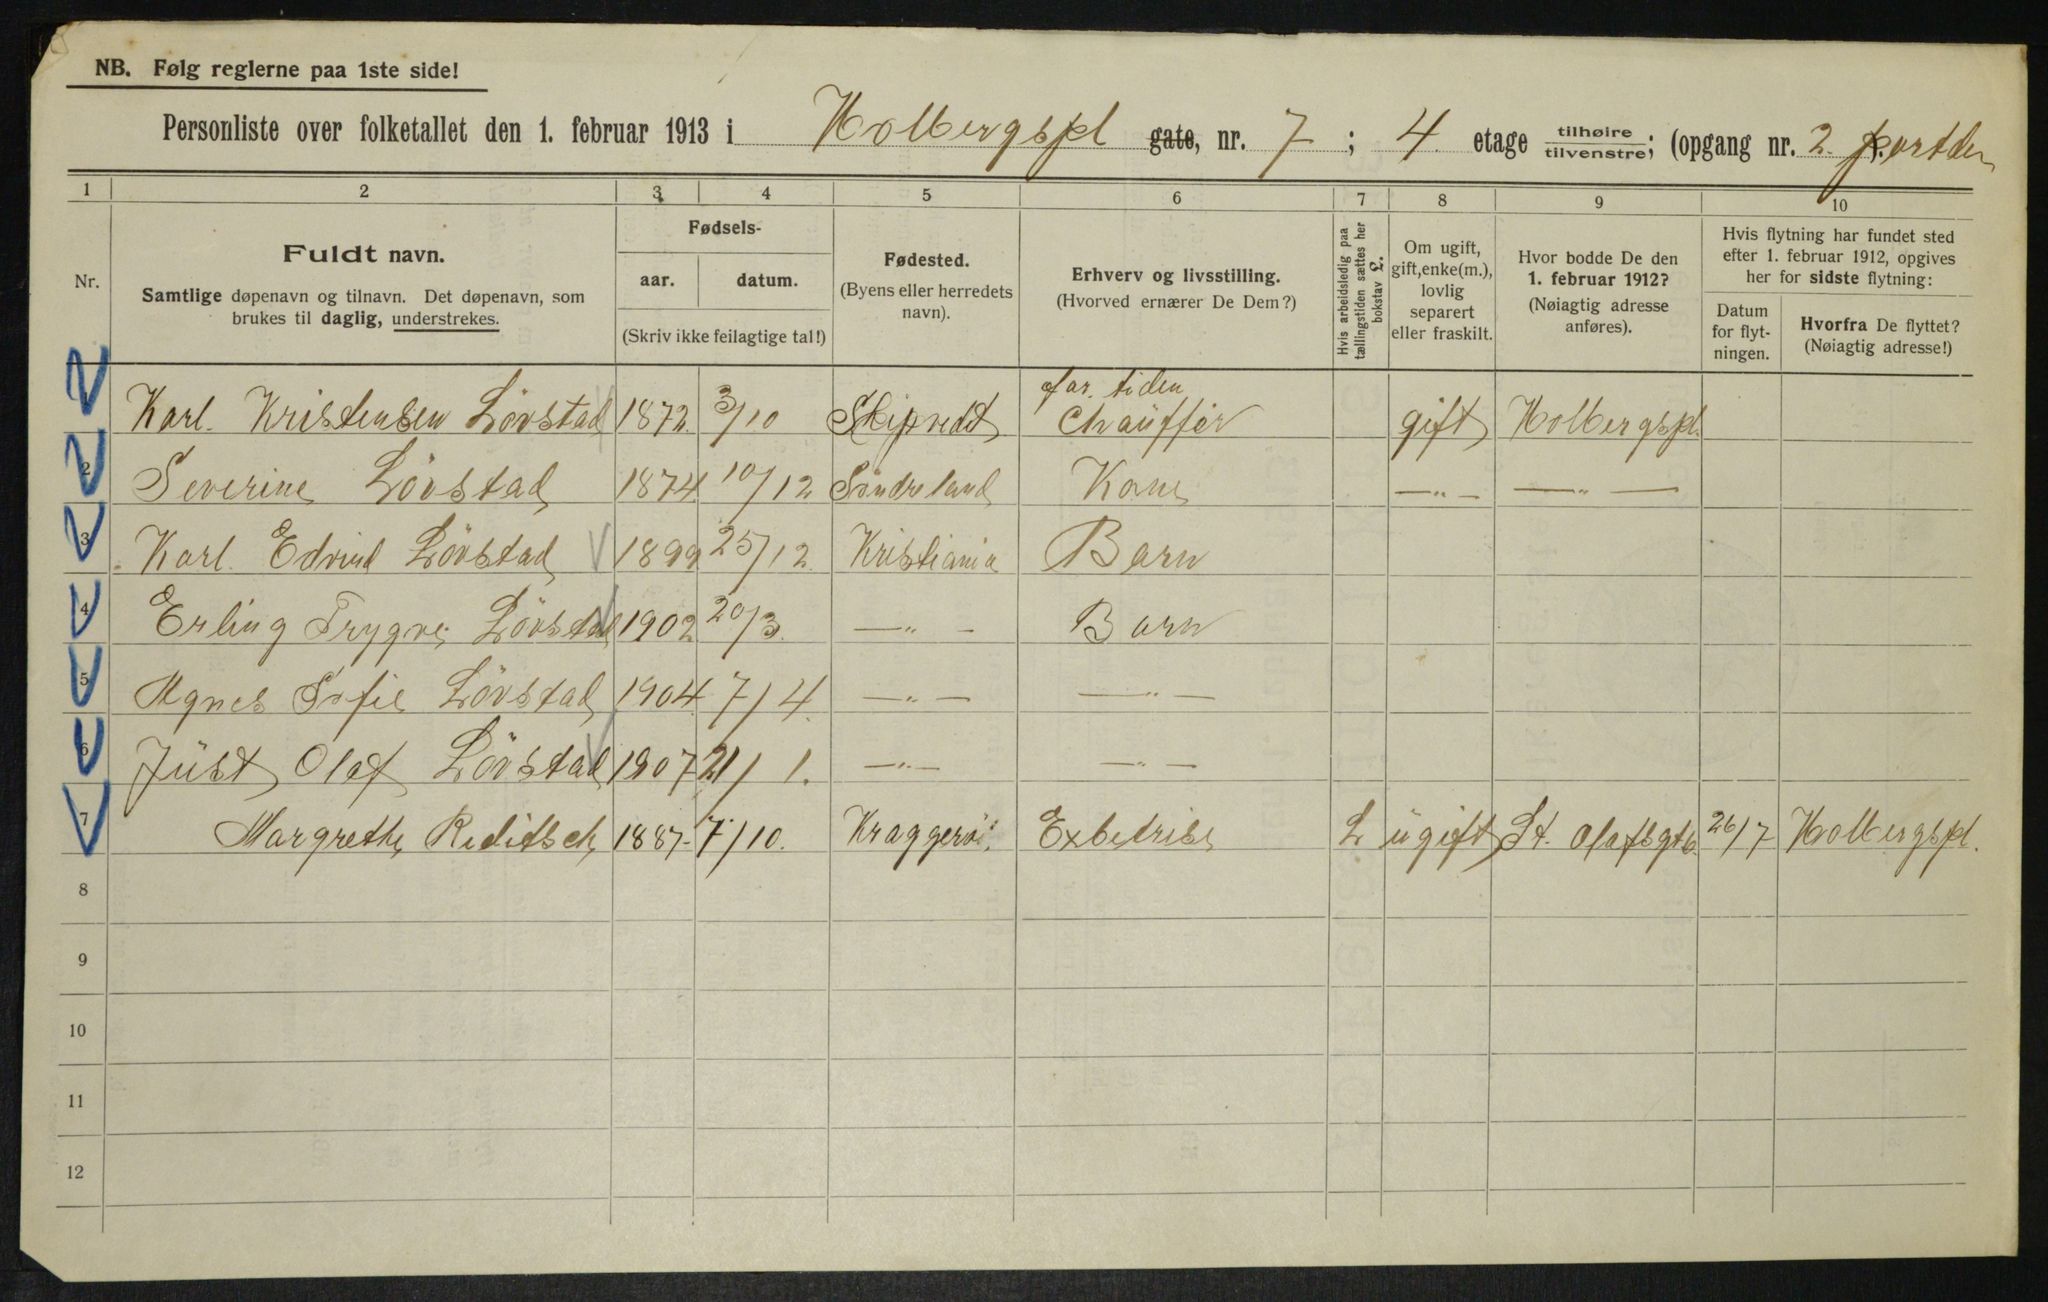 NB. Følg reglerne paa 1ste side!
Personliste over folketallet den 1. februar 1913 i Holbergspl gate, nr. 7 ; 4 etage tilhøire tilvenstre; (opgang nr. 2. ). portden
1 2 3 4 5 6 7 8 9 10
Nr.
Fuldt navn.
Samtlige døpenavn og tilnavn. Det døpenavn, som
brukes til daglig, understrekes.
Fødsels-
aar. datum.
(Skriv ikke feilagtige tal!)
Fødested.
(Byens eller herredets
navn).
Erhverv og livsstilling.
(Hvorved ernærer De Dem?)
Hvis arbeidsledig paa
tællingstiden sættes her
bokstav L.
Om ugift,
gift, enke(m.),
lovlig
separert
eller fraskilt.
Hvor bodde De den
1. februar 1912?
(Nøiagtig adresse
anføres).
Hvis flytning har fundet sted
efter 1. februar 1912, opgives
her for sidste flytning:
Datum
for flyt-
ningen.
Hvorfra De flyttet?
(Nøiagtig adresse!)
for. tiden
1 Karl. Kristensen Lövstad 1872. 3/10 Skipvedt Chauffør gift Holbergspl.
2 Severine Lövstad 1874 10/12 Söndreland Kone —„— —„—
3 Karl. Edvind Lövstad 1899 25/12. Kristiania Barn
4 Erling Trygve Lövstad 1902 20/3. —„— Barn
5 Agnes Sofie Lövstad 1904 7/4. —„— —„—
6 Just Olaf Lövstad 1907 21/1. —„— —„—
7 Margrethe Reditsch 1887- 7/10. Kraggerö. Exbetrise L ugift St. Olafsgt 6. 26/7 Holbergspl.
8
9
10
11
12